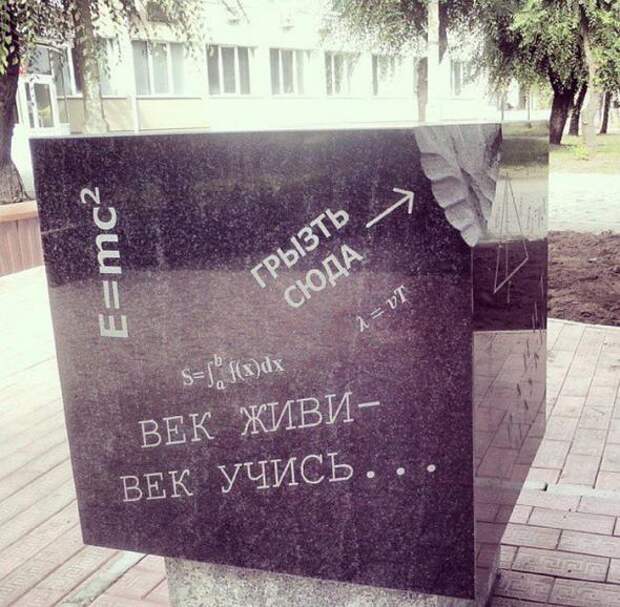 E=mc²
ГРЫЗТЬ
СЮДА
λ = υT
S=∫ₐᵇ f(x)dx
ВЕК ЖИВИ-
ВЕК УЧИСЬ...